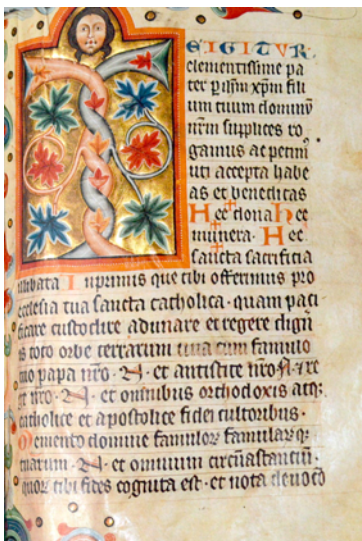 EIGITVR
clementissime pa
ter p ihm xpm fili
um tuum dominū
nrm supplices ro
gamus ac petim
uti accepta habe
as et benedicas
Hec dona hec
munera. Hec
sancta sacrificia
illibata Inprimis que tibi offerimus pro
ecclesia tua sancta catholica. quam paci
ficare custodire adunare et regere dign
is toto orbe terrarum una cum famulo
tuo papa nro. N. et antistite nro. N. et re
ge nro. N. et omnibus orthodoxis atq;
catholice et apostolice fidei cultoribus.
Memento domine famuloꝝ famulaꝝq;
tuarum. N. et omnium circūastantiū.
quoꝝ tibi fides cognita est. et nota deuocō